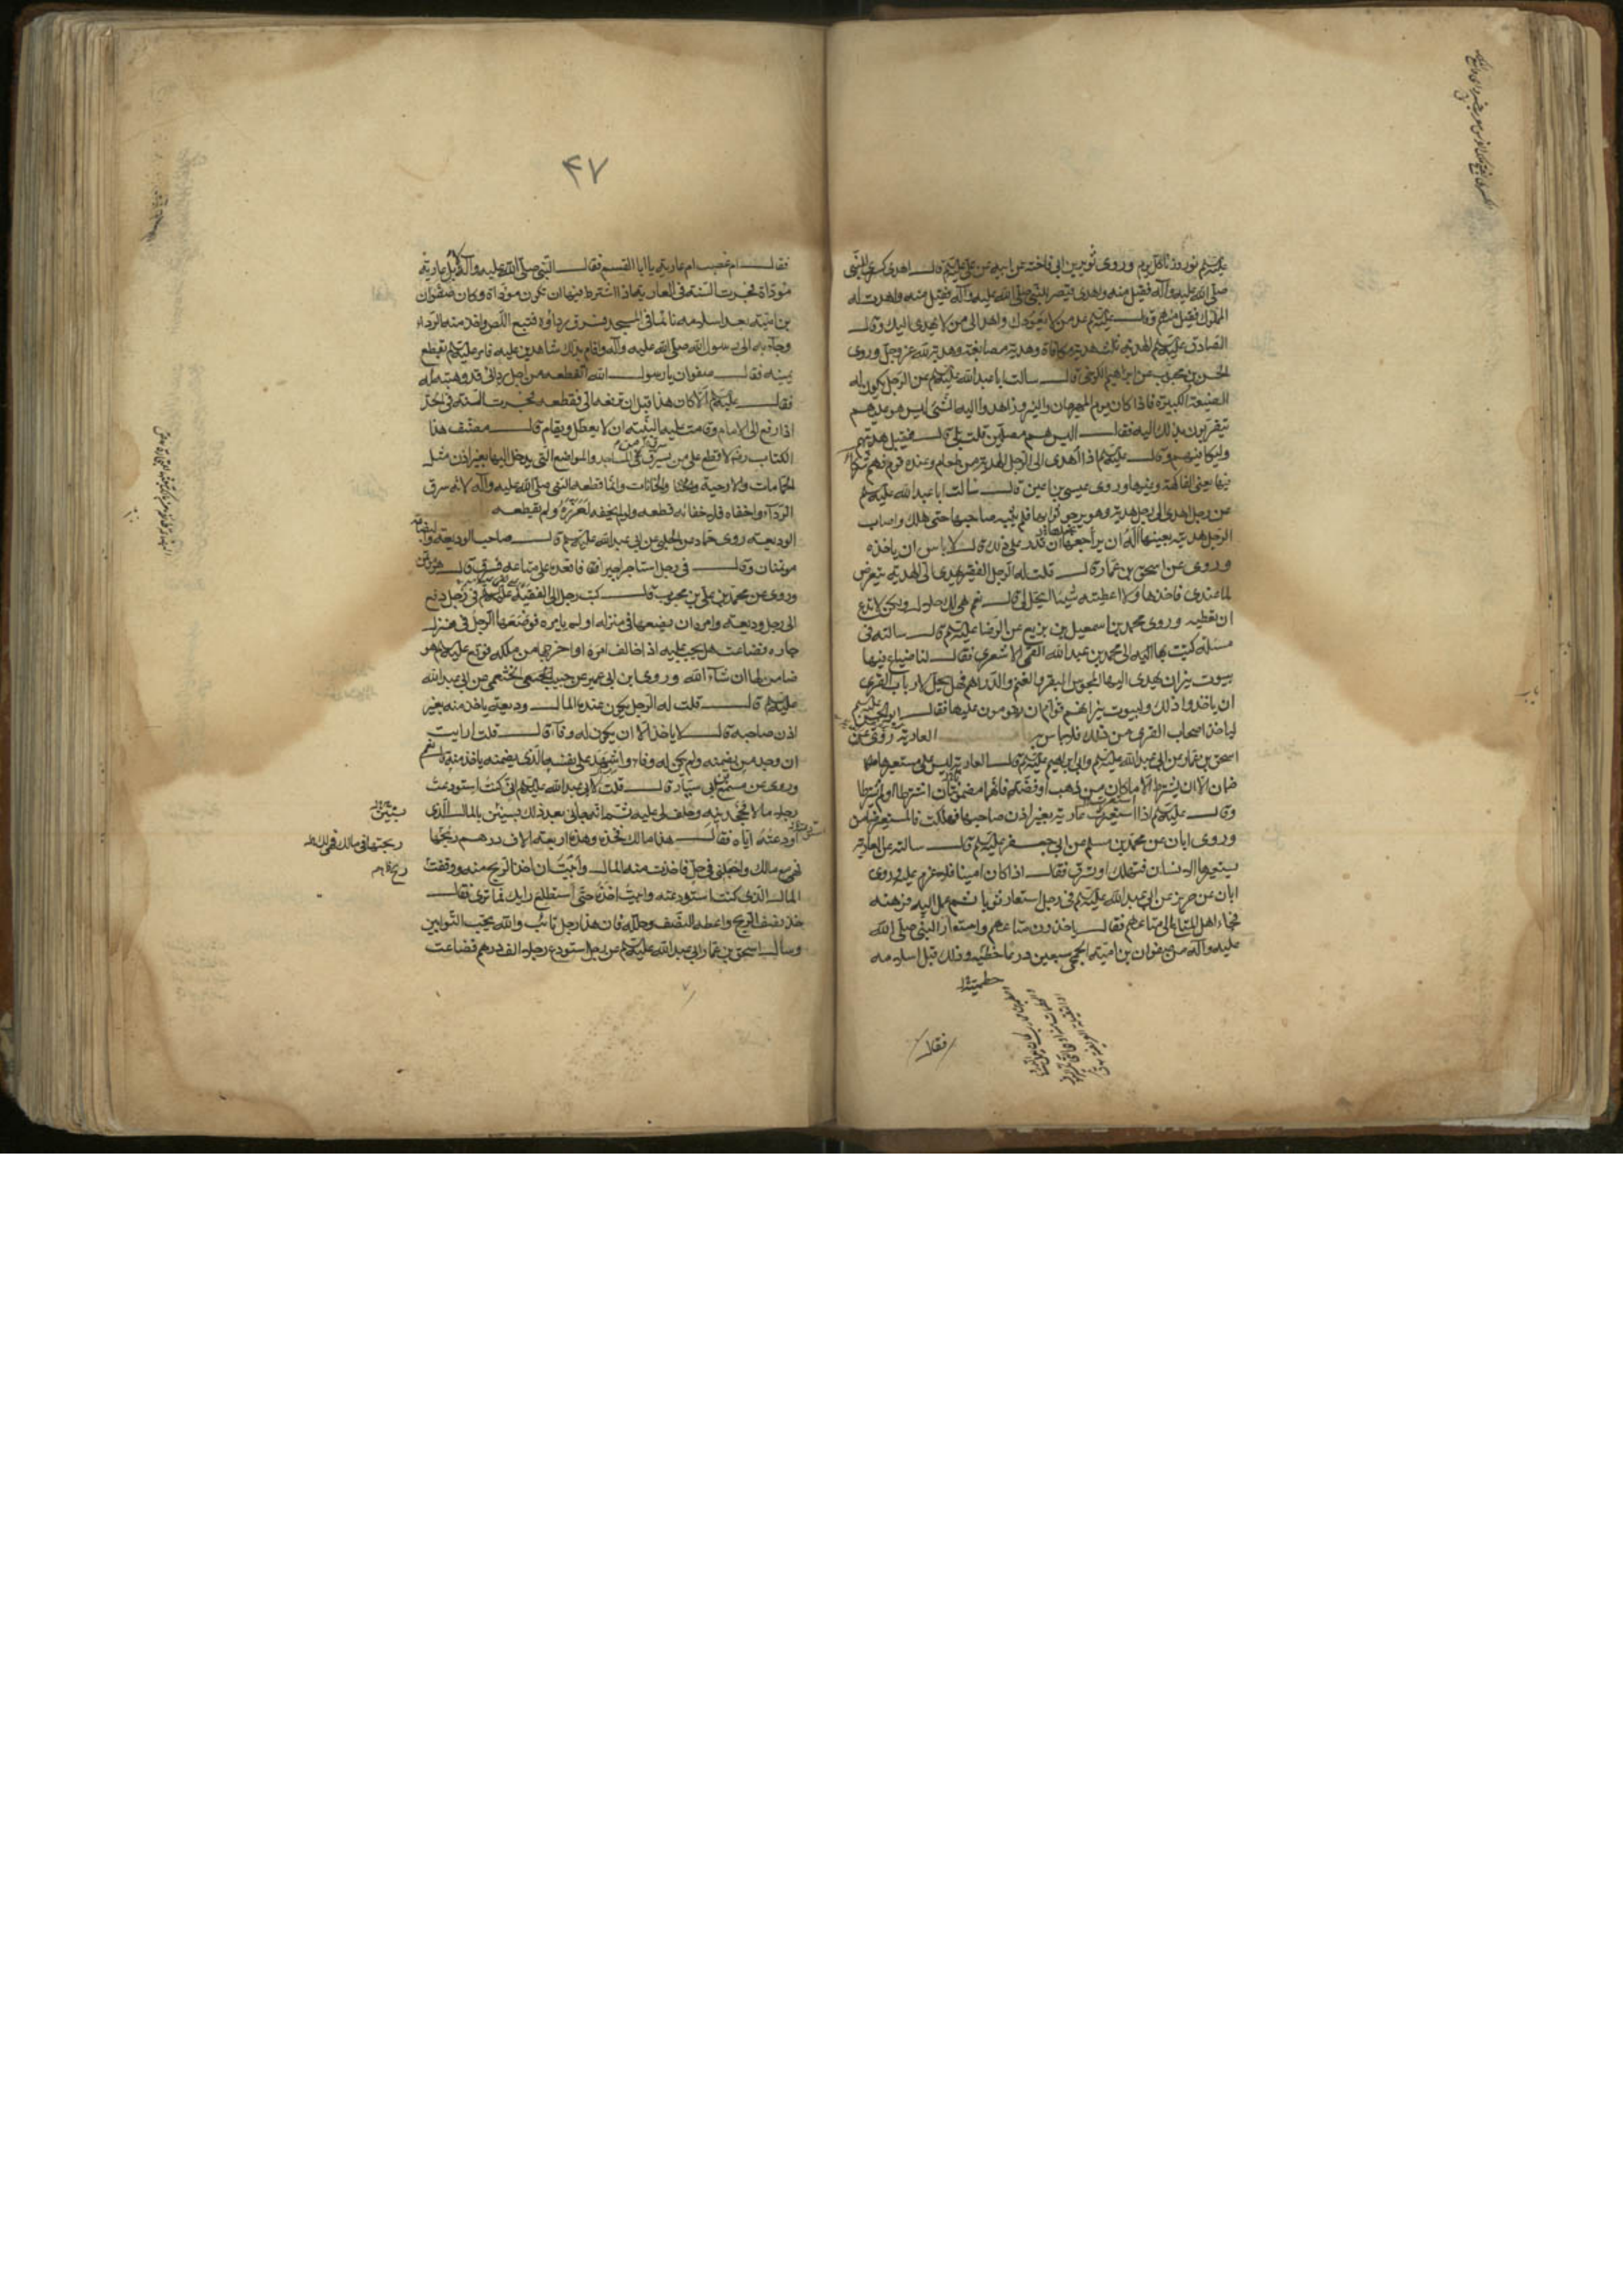 عليه السلام نوروزنا كل يوم وروى ثوير بن ابي فاخته عن ابيه عن علي عليه السلام قال اهدى كسرى للنبي
صلى الله عليه وآله فقبل منه واهدى قيصر للنبي صلى الله عليه وآله فقبل منه واهدت له
الملوك فقبل منهم وقال عليه السلام عد من لا يعودك واهد الى من لا يهدي اليك وقال
الصادق عليه السلام الهدية ثلث هدية مكافاة وهدية مصانعة وهدية لله عز وجل وروى
الحسن بن محبوب عن ابراهيم الكرخي قال سالت ابا عبد الله عليه السلام عن الرجل يكون له
الضيعة الكبيرة فاذا كان يوم المهرجان والنيروز اهدوا اليه الشئ ليس هو عليهم
يتقربون بذلك اليه فقال اليس هم مصلين قلت بلى قال فليقبل هديتهم
وليكافيهم وقال عليه السلام اذا اهدى الى الرجل الهدية من طعام وعنده قوم فهم شركاؤه
فيها يعني الفاكهة وغيرها وروى عيسى بن اعين قال سالت ابا عبد الله عليه السلام
عن رجل اهدى الى رجل هدية وهو يرجو ثوابها فلم يثبه صاحبها حتى هلك واصاب
الرجل هديته بعينها اله ان يراجعها ان قدر على ذلك قال لا باس ان ياخذه
وروى عن اسحق بن عمار قال قلت له الرجل الفقير يهدي الى الهدية يتعرض
لما عندي فاخذها ولا اعطيه شيئا ايحل لي قال نعم هي لك حلال ولكن لا تدع
ان تعطيه وروى محمد بن اسمعيل بن بزيع عن الرضا عليه السلام قال سالته في
مسئلة كتبت بها اليه الى محمد بن عبد الله القمي الاشعري فقال لنا ضياع فيها
بيوت نيران يهدى اليها المجوس البقر والغنم والدراهم فهل يحل لارباب القرى
ان ياخذوا ذلك ولبيوت نيرانهم قوام ان يقومون عليها فقال ابو الحسن عليه السلام
لياخذ اصحاب القرى من ذلك فلا باس به العارية روى عن
اسحق بن عمار عن ابي عبد الله عليه السلام وابي ابراهيم عليه السلام قال العارية ليس على مستعيرها
ضمان الا ان يشترط الا ما كان من ذهب او فضة فانهما مضمونان اشترطا او لم يشترطا
وقال عليه السلام اذا استعيرت عارية بغير اذن صاحبها فهلكت فالمستعير ضامن
وروى ابان عن محمد بن مسلم عن ابي جعفر عليه السلام قال سالته عن العارية
يستعيرها الانسان فتهلك او تسرق فقال اذا كان امينا فلا غرم عليه وروى
ابان عن حريز عن ابي عبد الله عليه السلام في رجل استعار ثوبا ثم عمل اليه فرهنه
فجاء اهل المتاع الى متاعهم فقال ياخذون متاعهم واستعار النبي صلى الله
عليه وآله من صفوان بن امية الجمحي سبعين درعا حطمية وذلك قبل اسلامه
حطمية
فقال
۴۷
فقال ام غصب ام عارية يا ابا القسم فقال النبي صلى الله عليه وآله بل عارية
مؤداة فجرت السنة في العارية اذا اشترط فيها ان تكون مؤداة وكان صفوان
بن امية بعد اسلامه نائما في المسجد فسرق رداؤه فتبع اللص واخذ منه الرداء
وجاء به الى رسول الله صلى الله عليه وآله واقام بذلك شاهدين عليه فامر عليه السلام بقطع
يمينه فقال صفوان يا رسول الله اتقطعه من اجل ردائي قد وهبته له
فقال عليه السلام الا كان هذا قبل ان ترفعه الي فقطعه فجرت السنة في الحد
اذا رفع الى الامام وقامت عليه البينة ان لا يعطل ويقام قال مصنف هذا
الكتاب رضه لا قطع على من يسرق من المساجد والمواضع التي يدخل اليها بغير اذن مثل
الحمامات والارحية والخانات وانما قطعه النبي صلى الله عليه وآله لانه سرق
الرداء واخفاه فلاخفائه قطعه ولو لم يخفه لعزره ولم يقطعه
الوديعة روى حماد عن الحلبي عن ابي عبد الله عليه السلام قال صاحب الوديعة والبضاعة
مؤتمنان وقال في رجل استاجر اجيرا فاقعده على متاعه فسرق قال هو مؤتمن
وروى عن محمد بن علي بن محبوب قال كتب رجل الى الفقيه عليه السلام في رجل دفع
الى رجل وديعة وامره ان يضعها في منزله او لم يامره فوضعها الرجل في منزل
جاره فضاعت هل يجب عليه اذا خالف امره او اخرجها من ملكه فوقع عليه السلام هو
ضامن لها ان شاء الله وروى ابن ابي عمير عن حبيب الخثعمي عن ابي عبد الله
عليه السلام قال قلت له الرجل يكون عنده المال وديعة ياخذ منه بغير
اذن صاحبه قال لا ياخذ الا ان يكون له وفاء قال قلت ارايت
ان وجد من يضمنه ولم يكن له وفاء واشهد على نفسه الذي يضمنه ياخذ منه قال نعم
وروى عن مسمع ابي سيار قال قلت لابي عبد الله عليه السلام اني كنت استودعت
رجلا مالا فجحدنيه وحلف لي عليه ثم انه جاءني بعد ذلك بسنين بالمال الذي
اودعته اياه فقال هذا مالك فخذه وهذه اربعة الاف درهم ربحتها
فهي مع مالك واجعلني في حل فاخذت منه المال وابيت ان اخذ الربح منه ووقفت
المال الذي كنت استودعته وابيت اخذه حتى استطلع رايك فما ترى فقال
خذ نصف الربح واعطه النصف وحلله فان هذا رجل تائب والله يحب التوابين
وسال اسحق بن عمار ابي عبد الله عليه السلام عن رجل استودع رجلا الف درهم فضاعت
بسنتين
ربحتها في مالك فهي لك